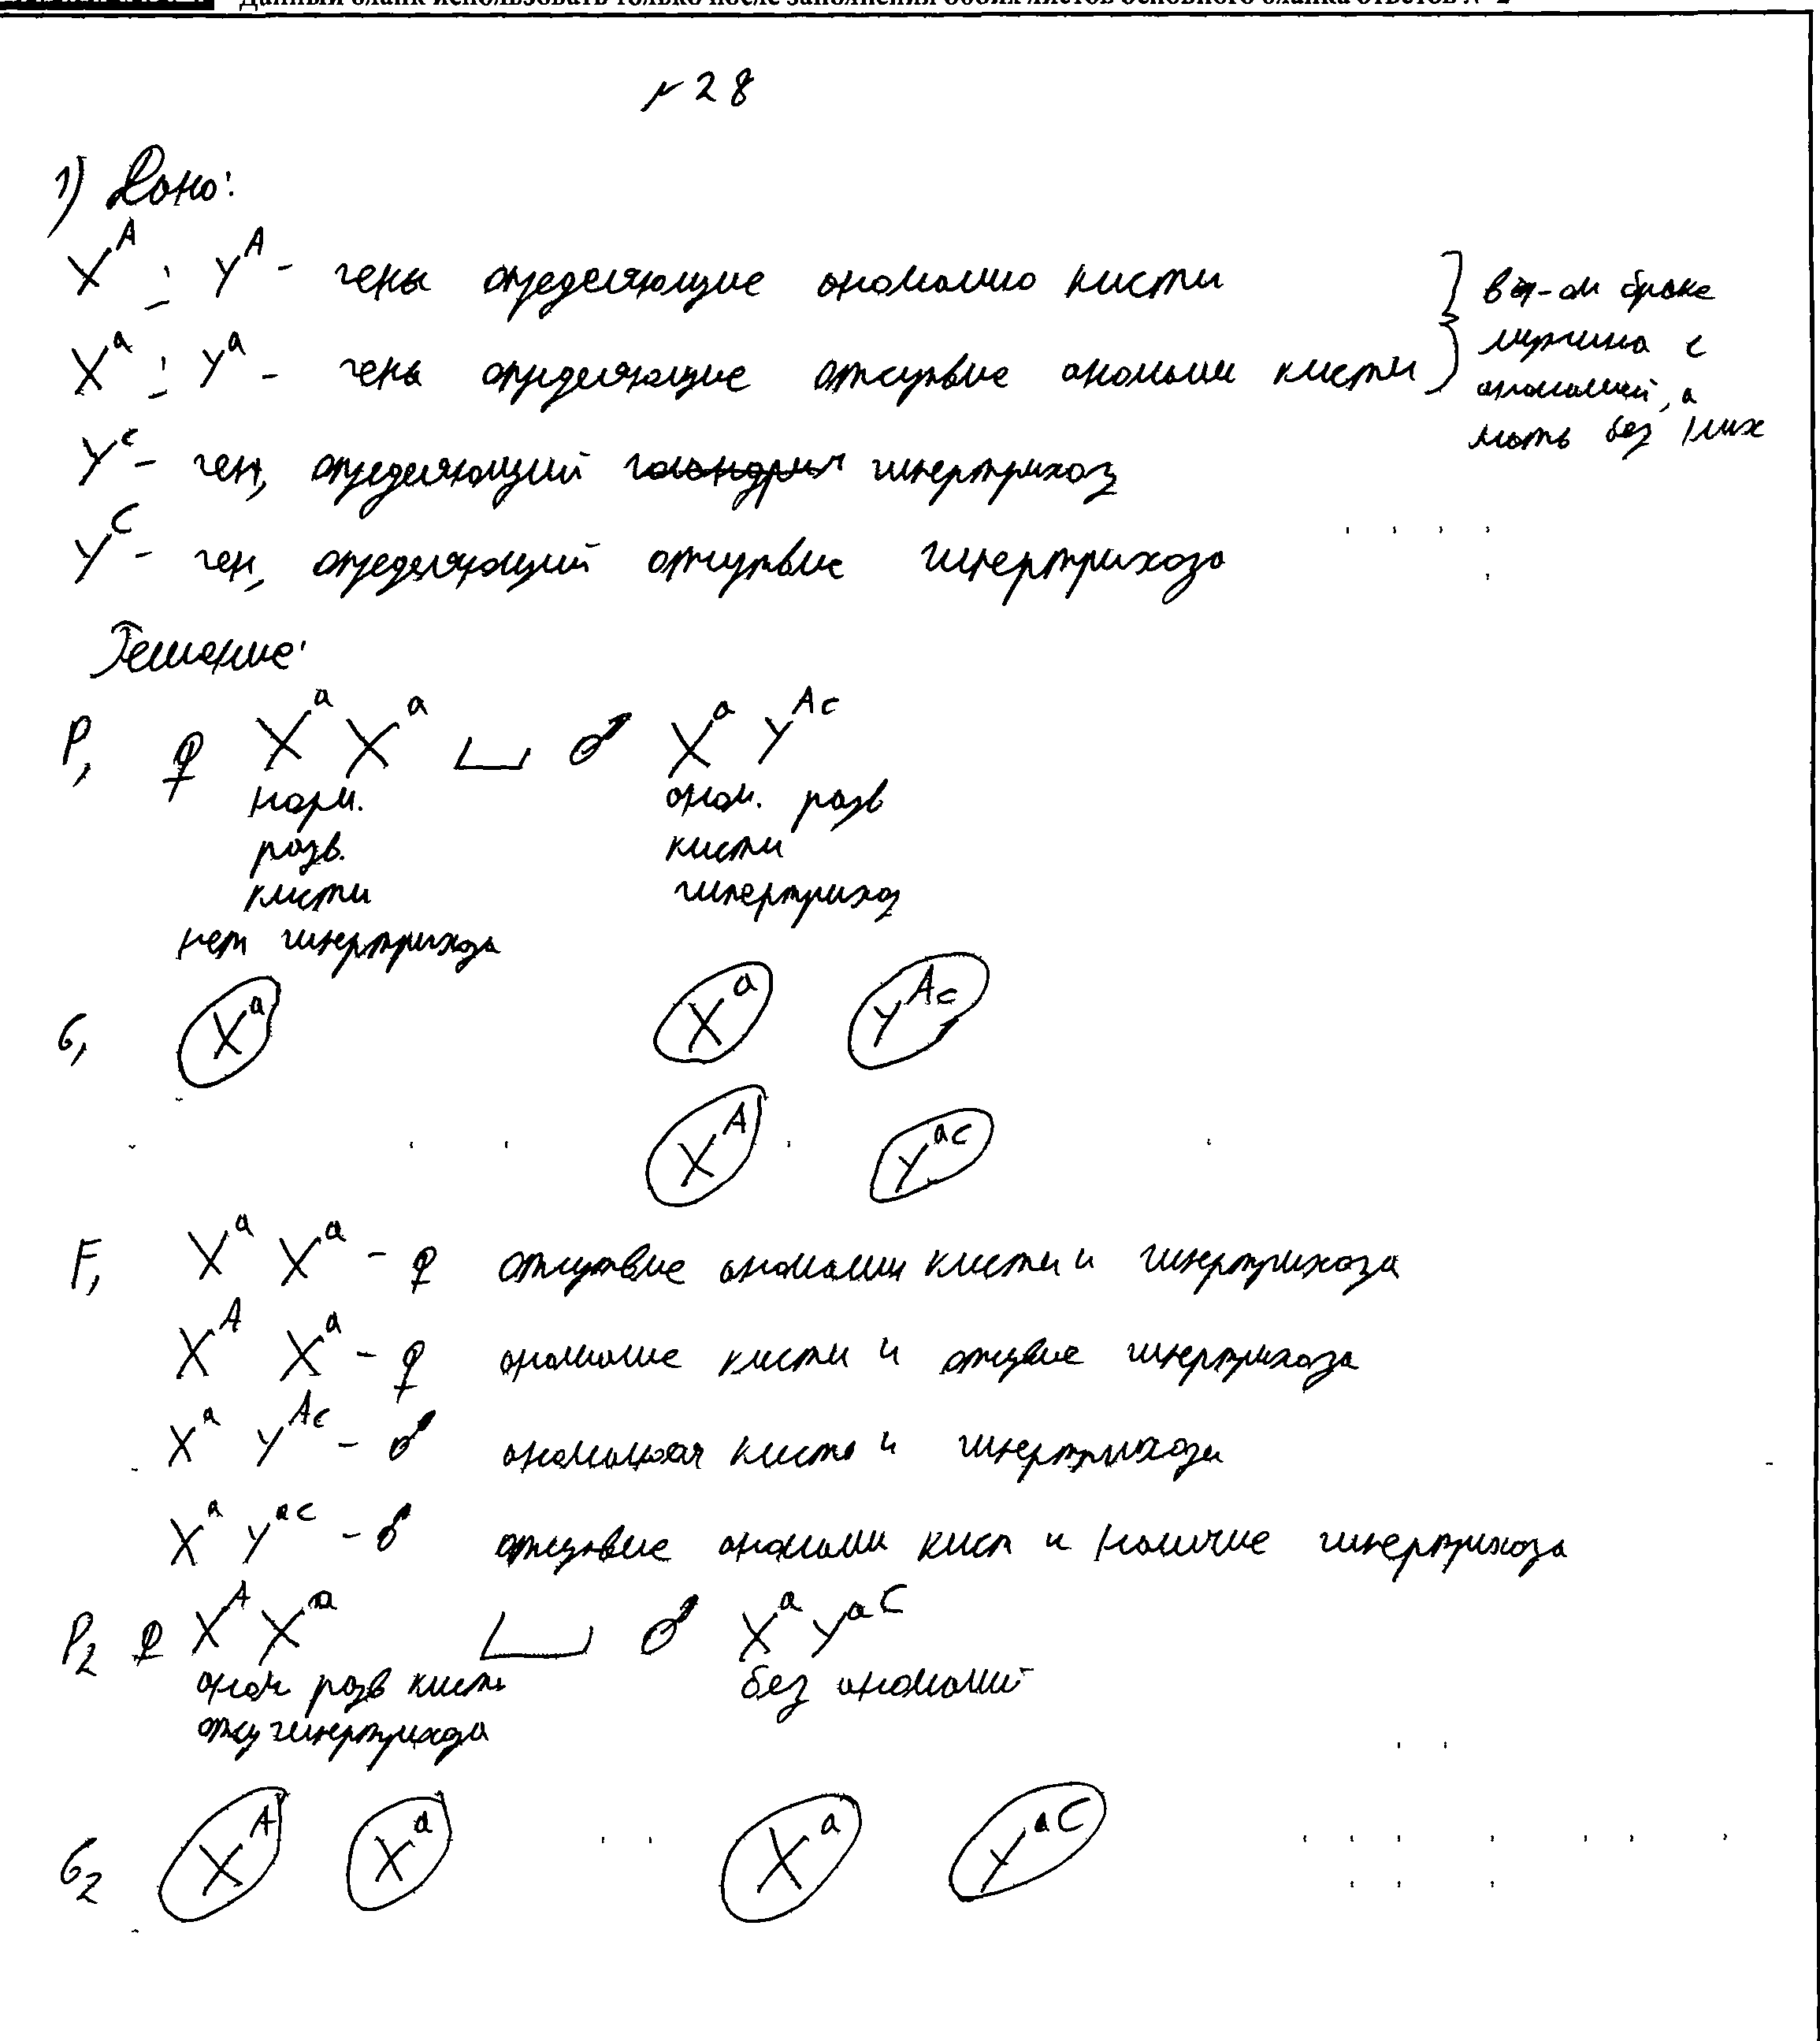 Данный бланк использовать только после заполнения обоих листов основного бланка ответов № 2
№ 28
1) Дано:
X^A ; Y^A - гены определяющие аномалию кисти
X^a ; Y^a - гены определяющие отсутвие аномалии кисти
} в браке
мужчина с
аномалией, а
мать без них
Y^c - ген, определяющий гипертрихоз
Y^C - ген, определяющий отсутвие гипертрихоза
Решение:
P1 ♀ X^a X^a ♂ X^a Y^Ac
норм. аном. разв
разв. кисти
кисти гипертрихоз
нет гипертрихоза
G1 X^a X^a Y^Ac
X^A Y^ac
F1 X^a X^a - ♀ отсутвие аномалии кисти и гипертрихоза
X^A X^a - ♀ аномалие кисти и отсувие гипертрихоза
X^a Y^Ac - ♂ кисти и гипертрихоза
X^a Y^ac - ♂ отсувие аномали кист и наличие гипертрихоза
P2 ♀ X^A X^a ♂ X^a Y^aC
аном разв кисти без аномалий
отсу гипертрихоза
G2 X^A X^a X^a Y^aC